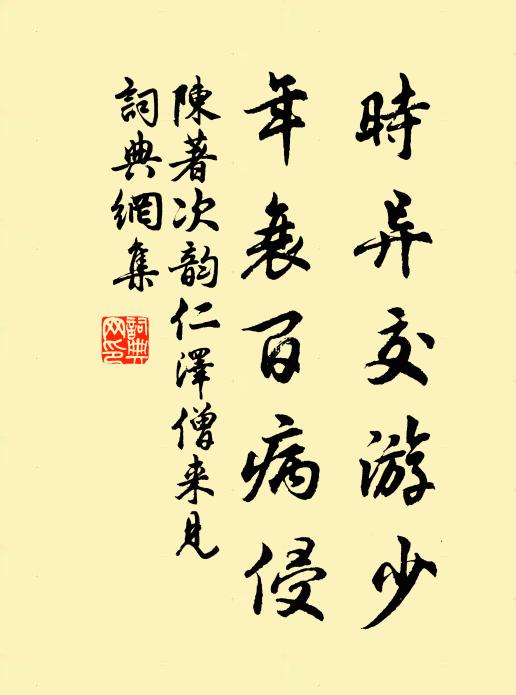 時异交游少
年衰百病侵
陳著次韵仁澤僧来見
詞典網集
詞典網印